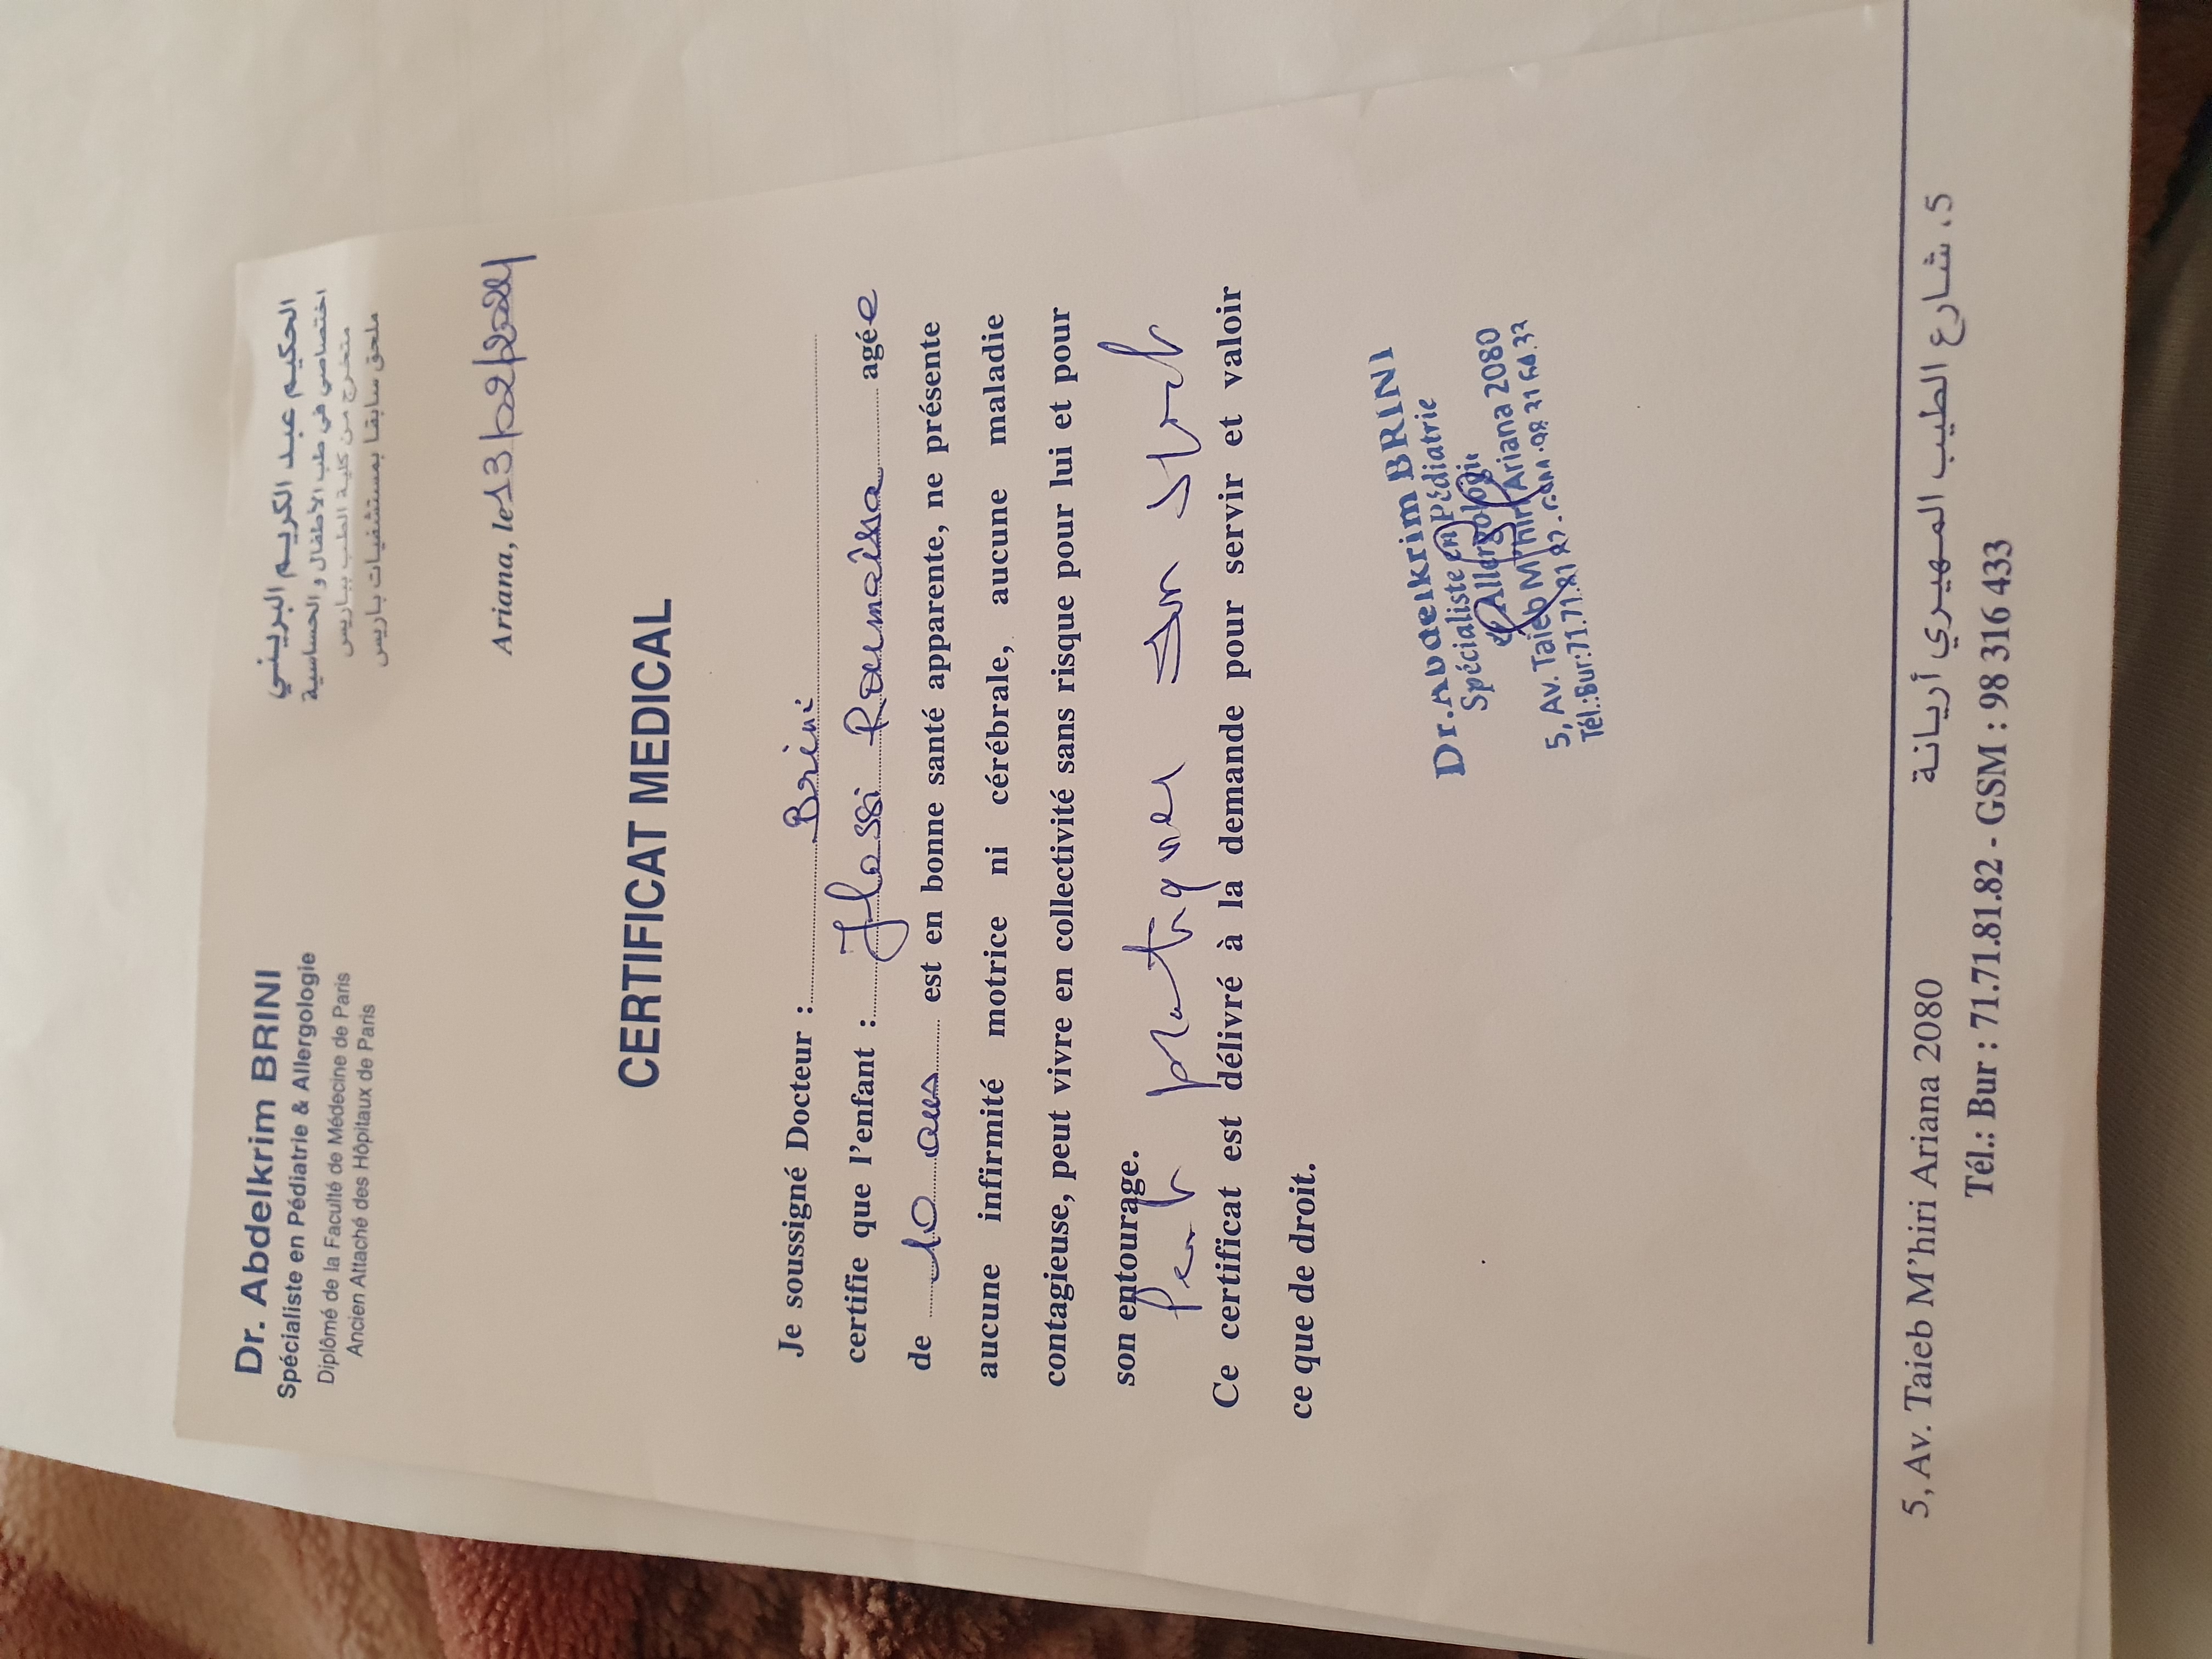 Dr. Abdelkrim BRINI
Spécialiste en Pédiatrie & Allergologie
Diplômé de la Faculté de Médecine de Paris
Ancien Attaché des Hôpitaux de Paris
الحكيم عبد الكريم البريني
اختصاصي في طب الأطفال و الحساسية
متخرج من كلية الطب بباريس
ملحق سابقا بمستشفيات باريس
Ariana, le 13/02/2024
CERTIFICAT MEDICAL
Je soussigné Docteur : Brini
certifie que l'enfant : Jlassi agée
de 10 ans est en bonne santé apparente, ne présente
aucune infirmité motrice ni cérébrale, aucune maladie
contagieuse, peut vivre en collectivité sans risque pour lui et pour
son entourage.
Peut pratiquer
Ce certificat est délivré à la demande pour servir et valoir
ce que de droit.
Dr. Abdelkrim BRINI
Spécialiste en Pédiatrie
& Allergologie
5, Av. Taieb M'hiri Ariana 2080
Tél.:Bur:71.71.81.82.
5, Av. Taieb M'hiri Ariana 2080
5، شارع الطيب المهيري أريانة
Tél.: Bur : 71.71.81.82 - GSM : 98 316 433